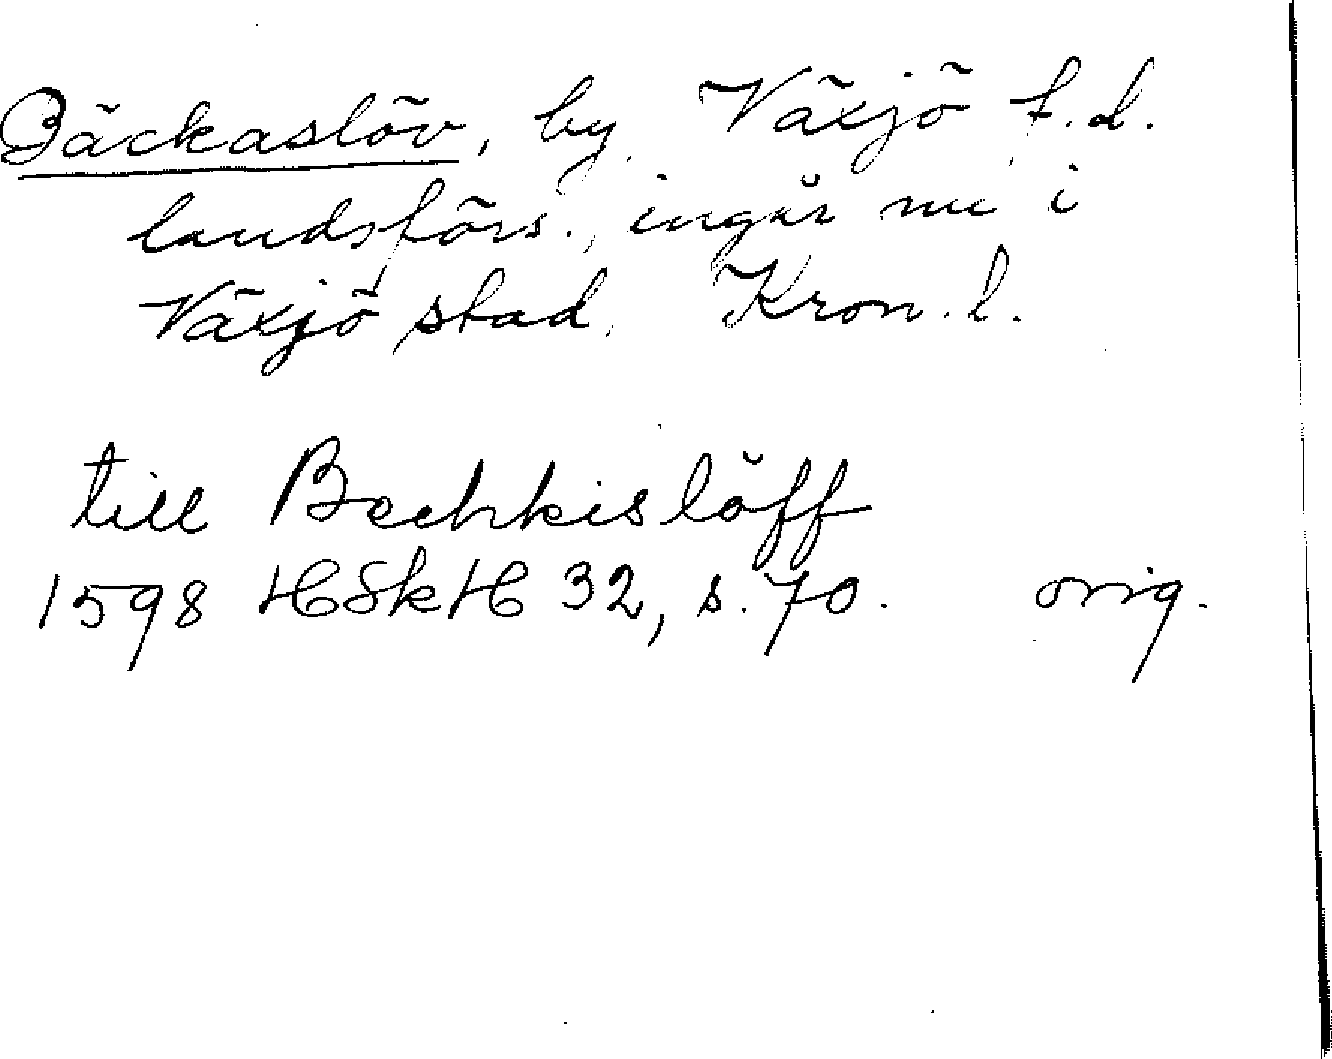 Bäckaslöv, by, Växjö f.d.
landsförs., ingår nu i
Växjö stad, Kron. l.
till Bechkislöff
1598 HSkH 32, s. 70. orig.